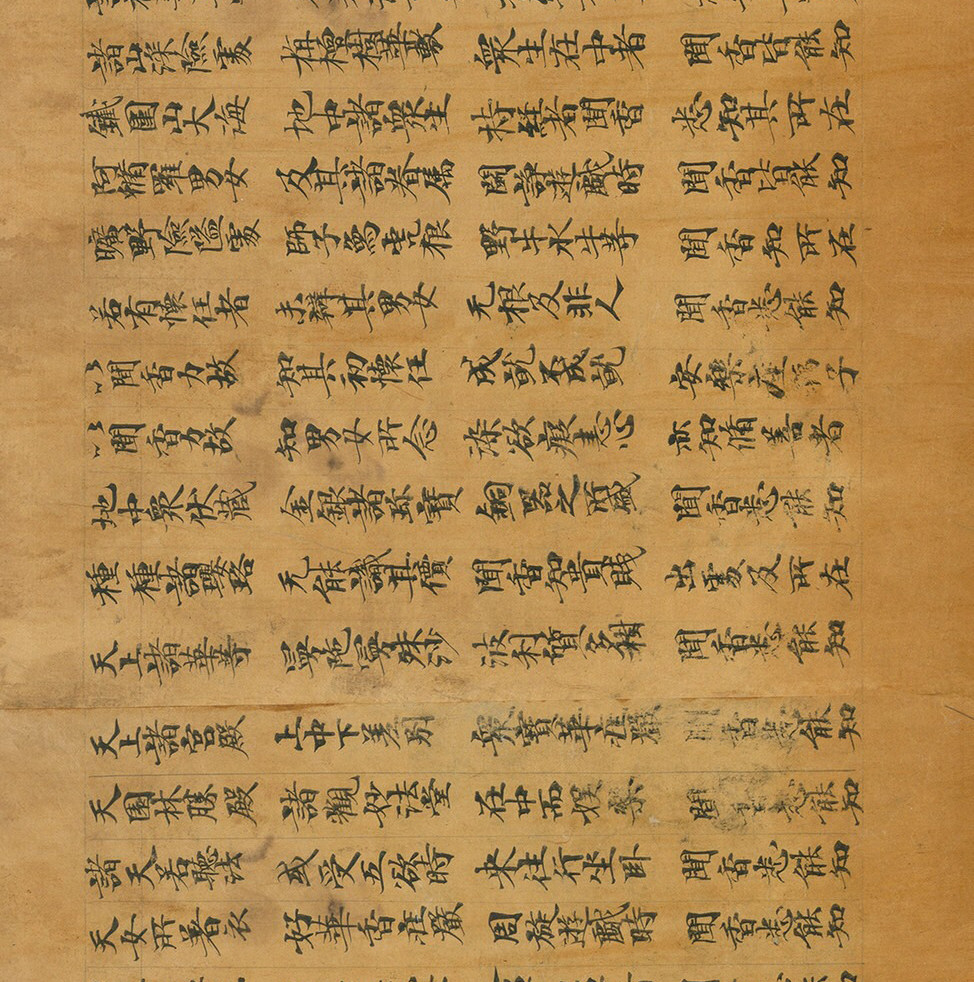 諸山深險處 栴檀樹華敷 眾生在中者 聞香皆能知
鐵圍山大海 地中諸眾生 持經者聞香 悉知其所在
阿脩羅男女 及其諸眷屬 鬪諍遊戲時 聞香皆能知
曠野險隘處 師子烏虎狼 野牛水牛等 聞香知所在
若有懷任者 未辯其男女 无根及非人 聞香悉能知
以聞香力故 知其初懷任 成就不成就 安樂產福子
以聞香力故 知男女所念 染欲癡恚心 亦知脩善者
地中眾伏藏 金銀諸珎寶 銅器之所盛 聞香悉能知
種種諸瓔珞 无能識其價 聞香知貴賤 出處及所在
天上諸華等 曼陀曼殊沙 波利質多樹 聞香悉能知
天上諸宮殿 上中下差別 眾寶華莊嚴 聞香悉能知
天園林勝殿 諸觀妙法堂 在中而娛樂 聞香悉能知
諸天若聽法 或受五欲時 來往行坐卧 聞香悉能知
天女所著衣 好華香莊嚴 周旋遊戲時 聞香悉能知